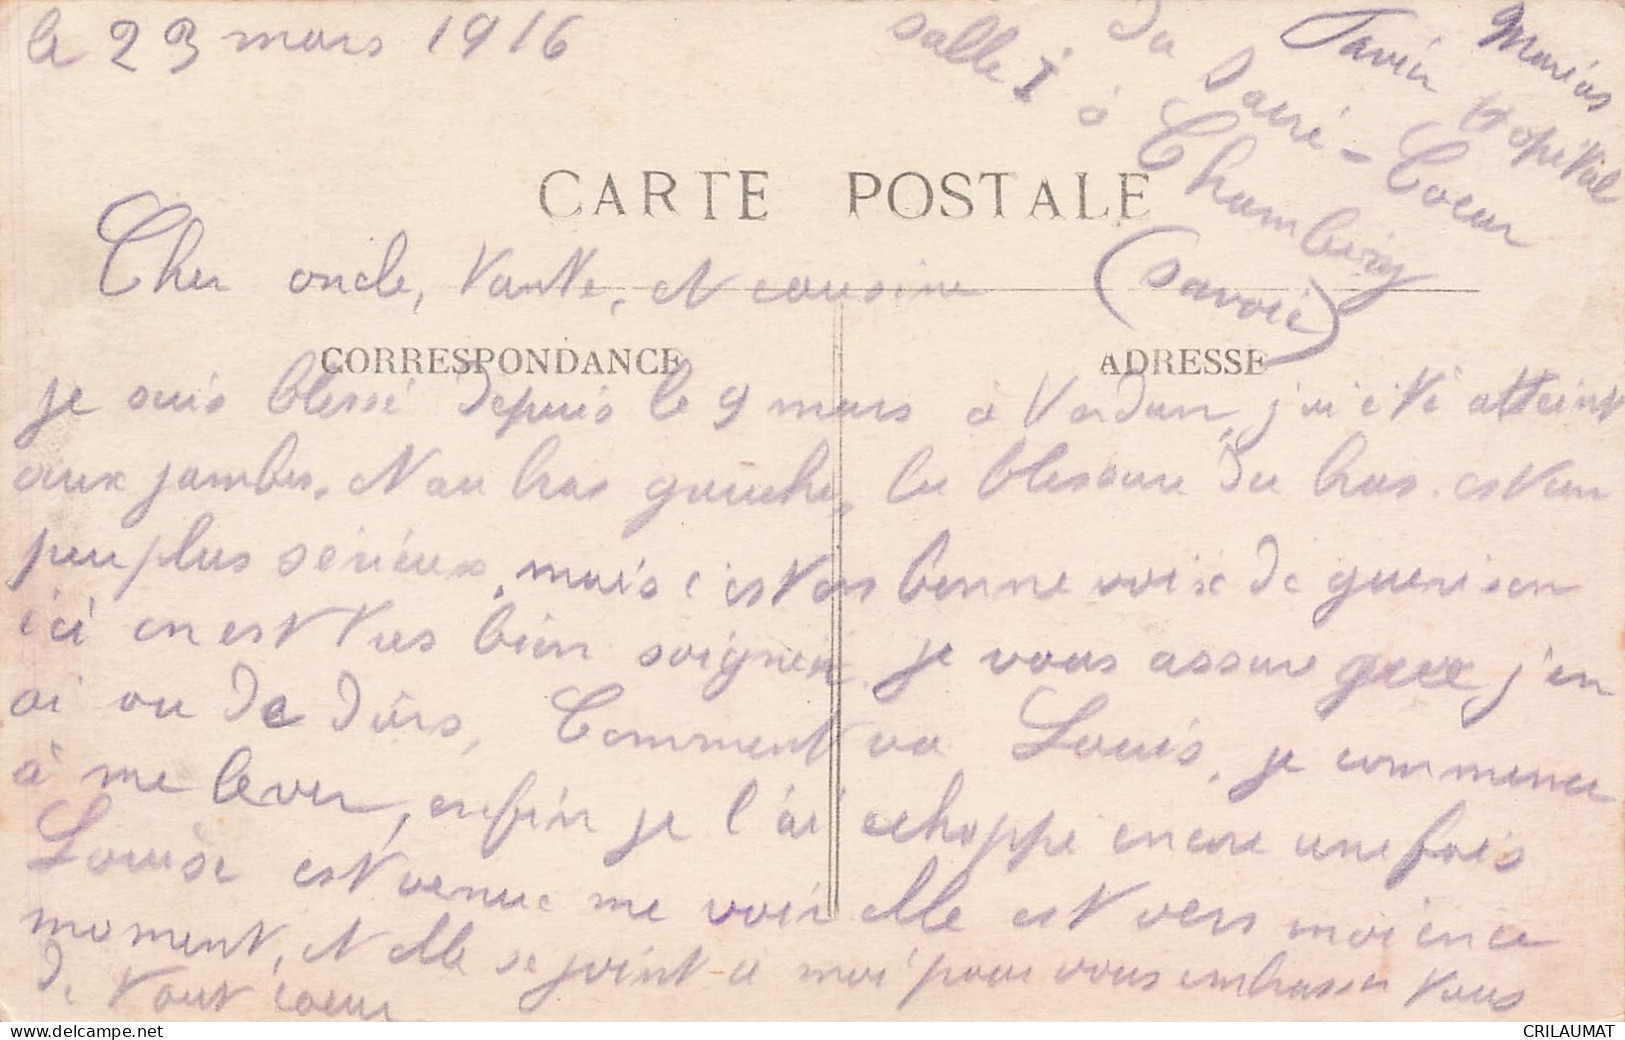 le 23 mars 1916
Marius
Hopital
du Sacré-Coeur
salle I à Chambéry
(Savoie)
CARTE POSTALE
Cher oncle, tante, et cousine
CORRESPONDANCE
ADRESSE
je suis blessé depuis le 9 mars à Verdun, j'ai été atteint
aux jambes, et au bras gauche, la blessure du bras est un
peu plus sérieux, mais c'est en bonne voix de guerison
ici on est tres bien soigner, je vous assure que j'en
ai vu de durs, Comment va Louis, je commence
à me lever, enfin je l'ai echappé encore une fois
Louise est venue me voir elle est vers moi en ce
moment, et elle se joint a moi pour vous embrasser tous
de tout coeur
CRILAUMAT